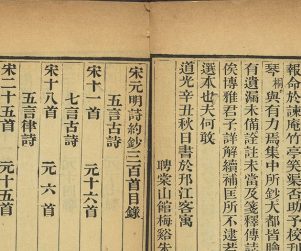 報命於諫庵竹堂掌茮否助予校
琴樹與有力焉集中所鈔大都皆膾
有遺漏未備詮註未當及箋釋傳誌
俟博雅君子詳解續補匡所不逮若
選本也夫何敢
道光辛丑秋日書於邗江客寓
聘棠山館梅谿朱
宋元明詩約鈔三百首目錄
五言古詩
宋十首 元十六首
七言古詩
宋十八首 元六首
五言律詩
宋二十五首 元十五首